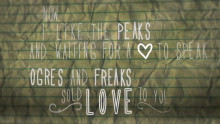 I LIKE THE PEAKS
AND WAITING FOR A ♥ TO SPEAK
OGRES AND FREAKS
SOLD LOVE TO YOU